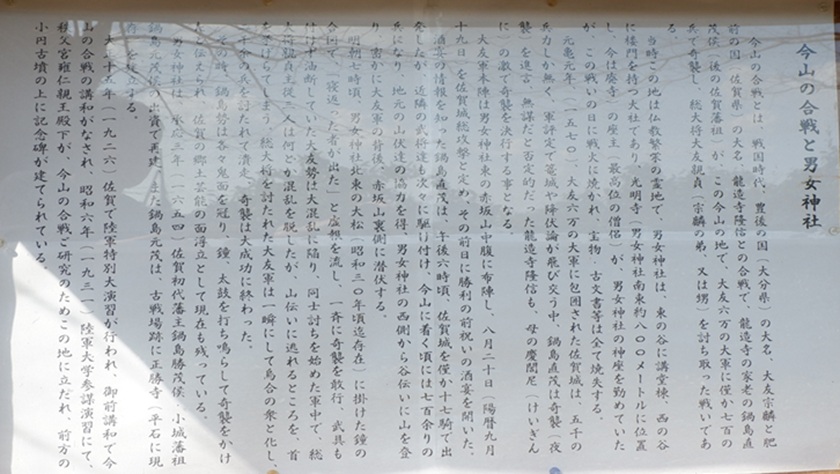 今山の合戦と男女神社
今山の合戦とは、戦国時代、豊後の国(大分県)の大名、大友宗麟と肥
前の国(佐賀県)の大名、龍造寺隆信との合戦で、龍造寺の家老の鍋島直
茂侯(後の佐賀藩祖)が、この今山の地で、大友六万の大軍に僅か七百の
兵で奇襲し、総大将大友親貞(宗麟の弟、又は甥)を討ち取った戦いであ
る。
当時この地は仏教繁栄の霊地で、男女神社は、東の谷に講堂棟、西の谷
に楼門を持つ大社であり、光明寺(男女神社南東約八〇〇メートルに位置
し、今は廃寺)の座主(最高位の僧侶)が、男女神社の神座を勤めていた
が、この戦いの日に戦火に焼かれ、宝物、古文書等は全て焼失する。
元亀元年(一五七〇)、大友六万の大軍に包囲された佐賀城は、五千の
兵力しか無く、軍評定で籠城や降伏論が飛び交う中、鍋島直茂は奇襲(夜
襲)を進言、無謀だと否定的だった龍造寺隆信も、母の慶誾尼(けいぎん
に)の激で奇襲を決行する事となる。
大友軍本陣は男女神社東の赤坂山中腹に布陣し、八月二十日(陽暦九月
十九日)を佐賀城総攻撃と定め、その前日に勝利の前祝いの酒宴を開いた。
酒宴の情報を知った鍋島直茂は、午後六時頃、佐賀城を僅か十七騎で出
発したが、近隣の武将達も次々に駆け付け、今山に着く頃には七百余りの
兵になり、地元の山伏達の協力を得、男女神社の西側から谷伝いに山を登
り、密かに大友軍の背後、赤坂山裏側に潜伏する。
明朝六時頃、男女神社北東の大松(昭和三〇年頃迄存在)に掛けた鐘の
合図で「寝返った者が出た」と虚報を流し、一斉に奇襲を敢行、武具も
付けず油断していた大友勢は大混乱に陥り、同士討ちを始めた軍中で、総
大将親貞主従三人は何とか混乱を脱したが、山伝いに逃れるところを、首
を挙げられてしまう。総大将を討たれた大友軍は一瞬にして烏合の衆と化し、
二千余の兵を討たれて潰走、奇襲は大成功に終わった。
この時、鍋島勢は各々鬼面を冠り、鐘、太鼓を打ち鳴らして奇襲をかけ
たと伝えられ、佐賀の郷土芸能の面浮立として現在も残っている。
男女神社は、承応三年(一六五四)佐賀初代藩主鍋島勝茂侯、小城藩祖
鍋島元茂侯の出資で再建 た鍋島元茂は、古戦場跡に正勝寺(平石に現
存)を建立する。
大正十五年(一九二六)佐賀で陸軍特別大演習が行われ、御前講和で今
山の合戦の講和がなされ、昭和六年(一九三一)陸軍大学参謀演習にて、
秩父宮雍仁親王殿下が、今山の合戦ご研究のためこの地に立だれ、前方の
小円古墳の上に記念碑が建てられている。